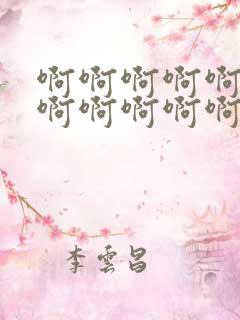 啊啊啊啊啊
啊啊啊啊啊
李雲昌